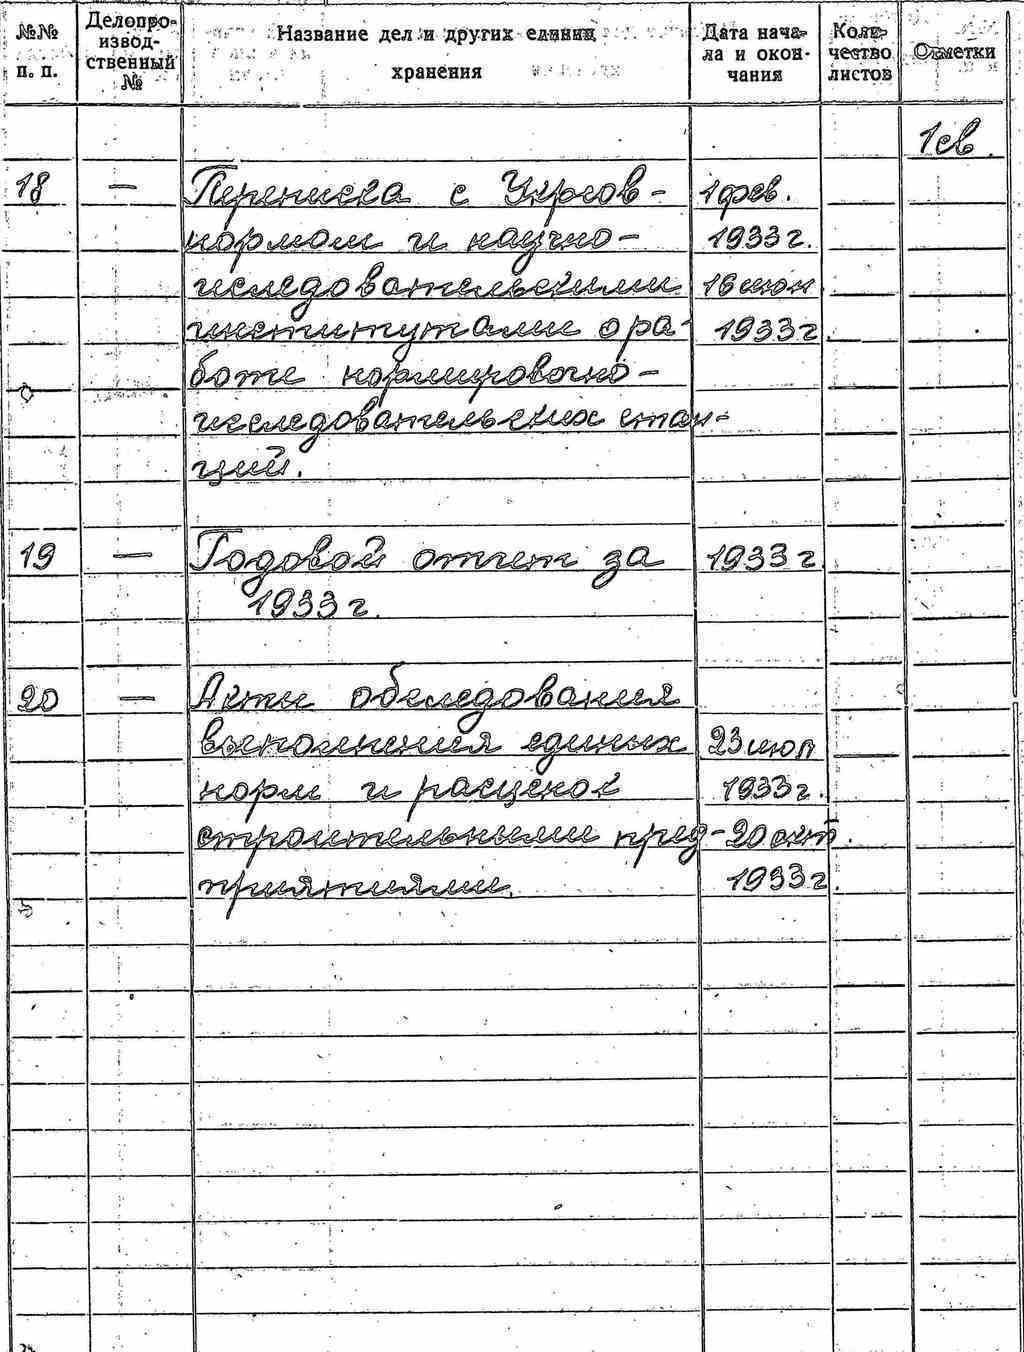 №№ п. п. Делопроизводственный № Название дел и других единиц хранения Дата начала и окончания Количество листов Отметки
1св.
18 — Переписка с Укрсов- 1 фев.
нормом и научно- 1933 г.
исследовательскими 16 июн
институтами о ра- 1933 г
боте нормировочно-
исследовательских стан-
ций.
19 — Годовой отчет за 1933 г.
1933 г.
20 — Акты обследования
выполнения единых 23 июл
норм и расценок 1933 г.
строительными пред- 20 окт.
приятиями. 1933 г.